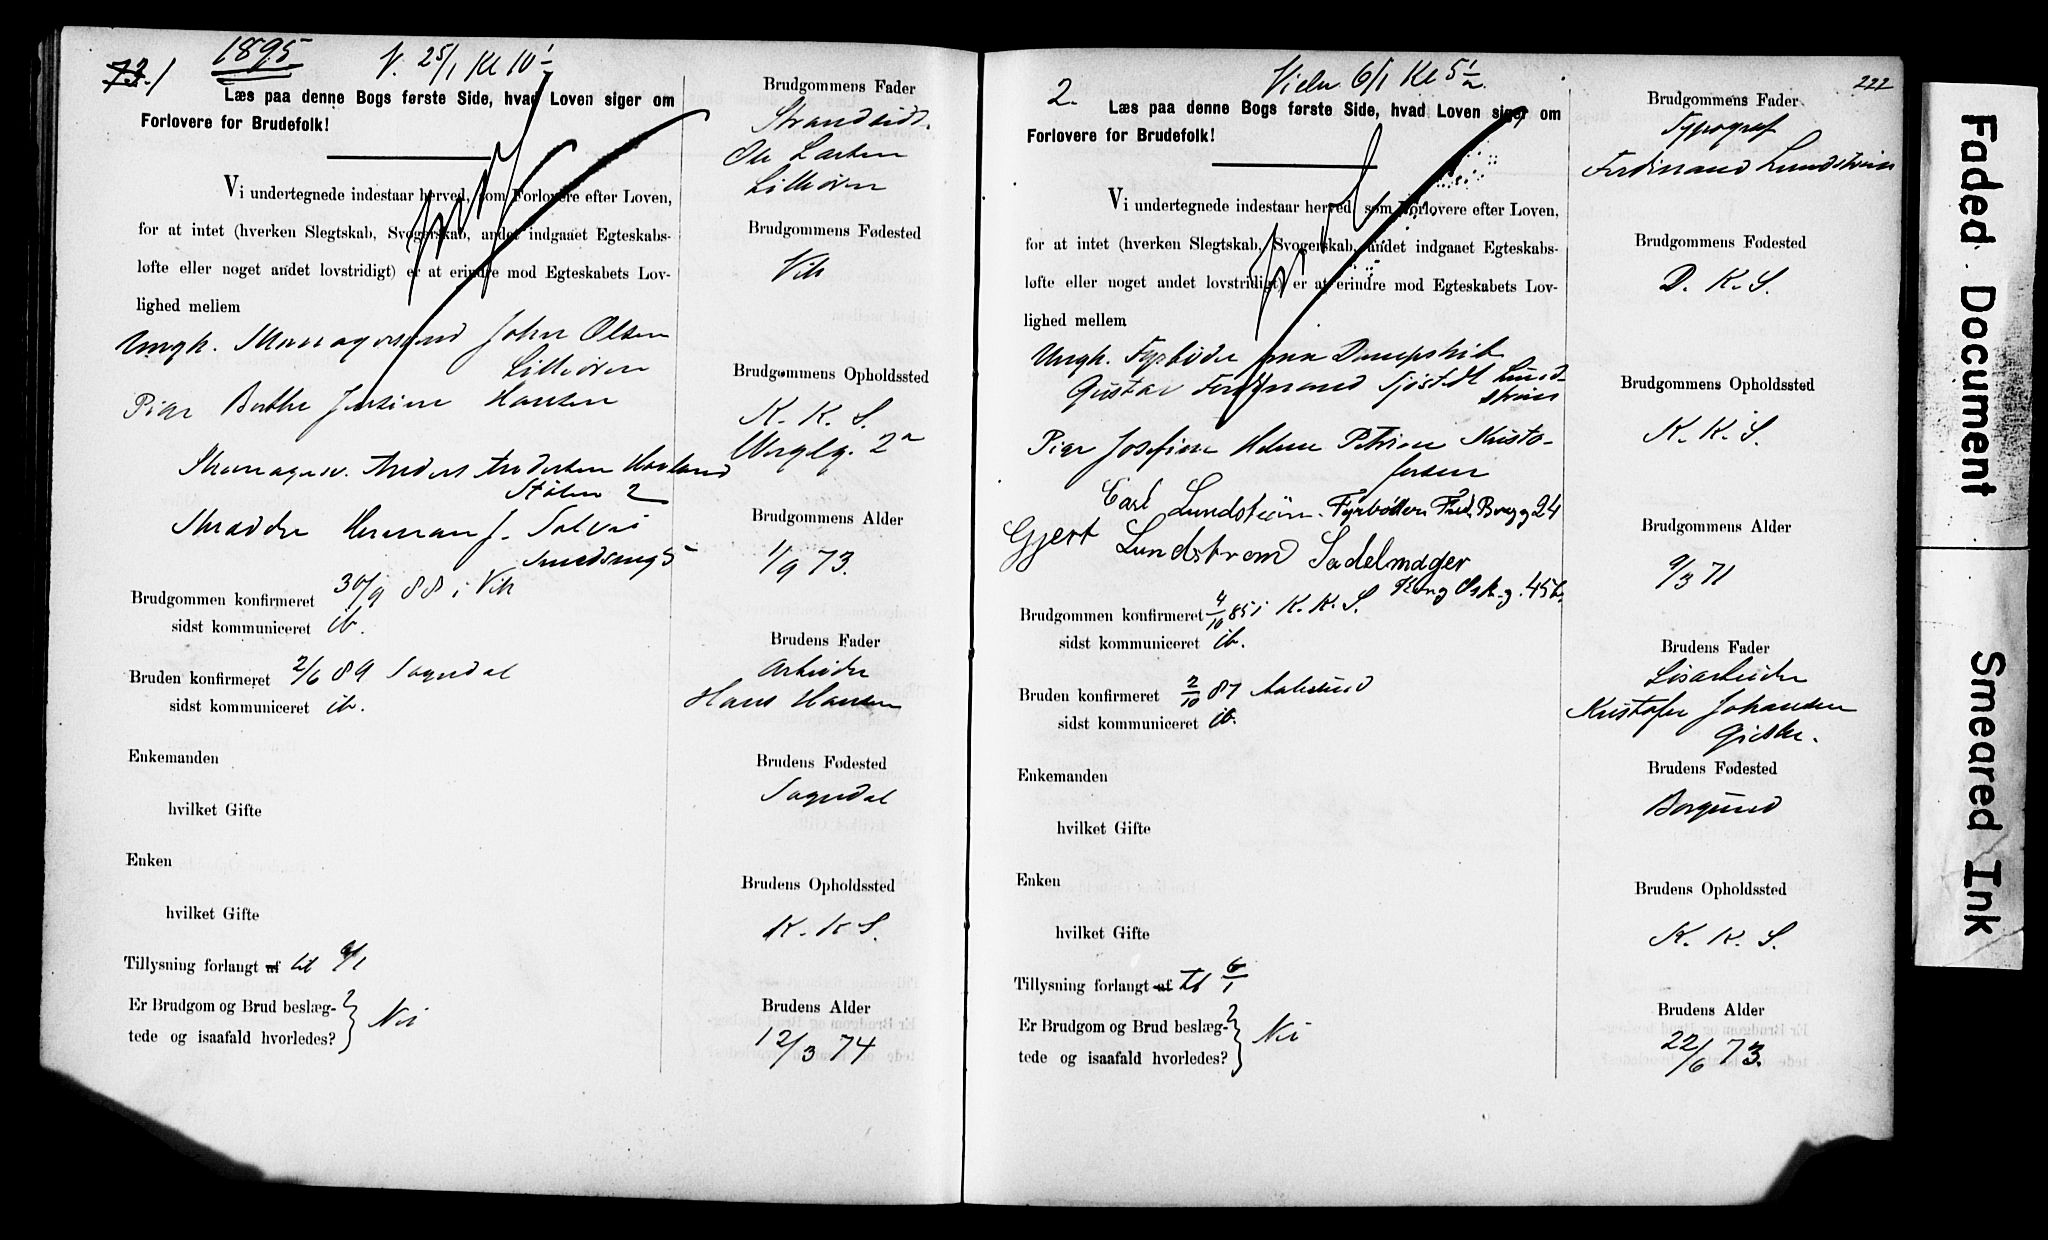 1895 V. 25/1 Kl 10½
73. 1
Læs paa denne Bogs første Side, hvad Loven siger om
Forlovere for Brudefolk!
Vi undertegnede indestaar herved, som Forlovere efter Loven,
for at intet (hverken Slegtskab, Svogerskab, andet indgaaet Egteskabs-
løfte eller noget andet lovstridigt) er at erindre mod Egteskabets Lov-
lighed mellem
Ungk. John Olsen
Pige Berthe Jensine Hansen
Anders Andersen
Stølen 2
Herman J.
Smedsmug 5
Brudgommen konfirmeret 30/9 88 i Vik
sidst kommuniceret ib.
Bruden konfirmeret 2/6 89 Sogndal
sidst kommuniceret ib.
Enkemanden
hvilket Gifte
Enken
hvilket Gifte
Tillysning forlangt af til 6/1
Er Brudgom og Brud beslæg-
tede og isaafald hvorledes? Nei
Brudgommens Fader
Strandsidd.
Ole Larsen
Brudgommens Fødested
Vik
Brudgommens Opholdssted
K. K. S.
Brudgommens Alder
1/9 73.
Brudens Fader
Arbeider
Hans Hansen
Brudens Fødested
Sogndal
Brudens Opholdssted
K. K. S.
Brudens Alder
12/3 74
222
Vielse 6/1 Kl 5½.
2.
Læs paa denne Bogs første Side, hvad Loven siger om
Forlovere for Brudefolk!
Vi undertegnede indestaar herved, som Forlovere efter Loven,
for at intet (hverken Slegtskab, Svogerskab, andet indgaaet Egteskabs-
løfte eller noget andet lovstridigt) er at erindre mod Egteskabets Lov-
lighed mellem
Ungk. Fyrbøder paa Dampskib
Gustav Ferdinand Sjøstedt Lund-
strøm
Pige Josefine Helene Petrine Kristo-
fersen
Carl Lundstrøm. Fyrbøtter 24
Gjert Lundstrom Sadelmager
Brudgommen konfirmeret 4/10 85 i K. K. S.
sidst kommuniceret ib.
Bruden konfirmeret 2/10 87 Aalesund
sidst kommuniceret ib.
Enkemanden
hvilket Gifte
Enken
hvilket Gifte
Tillysning forlangt af til 6/1
Er Brudgom og Brud beslæg-
tede og isaafald hvorledes? Nei
Brudgommens Fader
Typograf
Ferdinand Lundstrøm
Brudgommens Fødested
D. K. S.
Brudgommens Opholdssted
K. K. S.
Brudgommens Alder
9/3 71
Brudens Fader
Løsarbeider
Kristofer Johansen
Giske.
Brudens Fødested
Borgund
Brudens Opholdssted
K. K. S.
Brudens Alder
22/6 73.
Faded Document
Smeared Ink